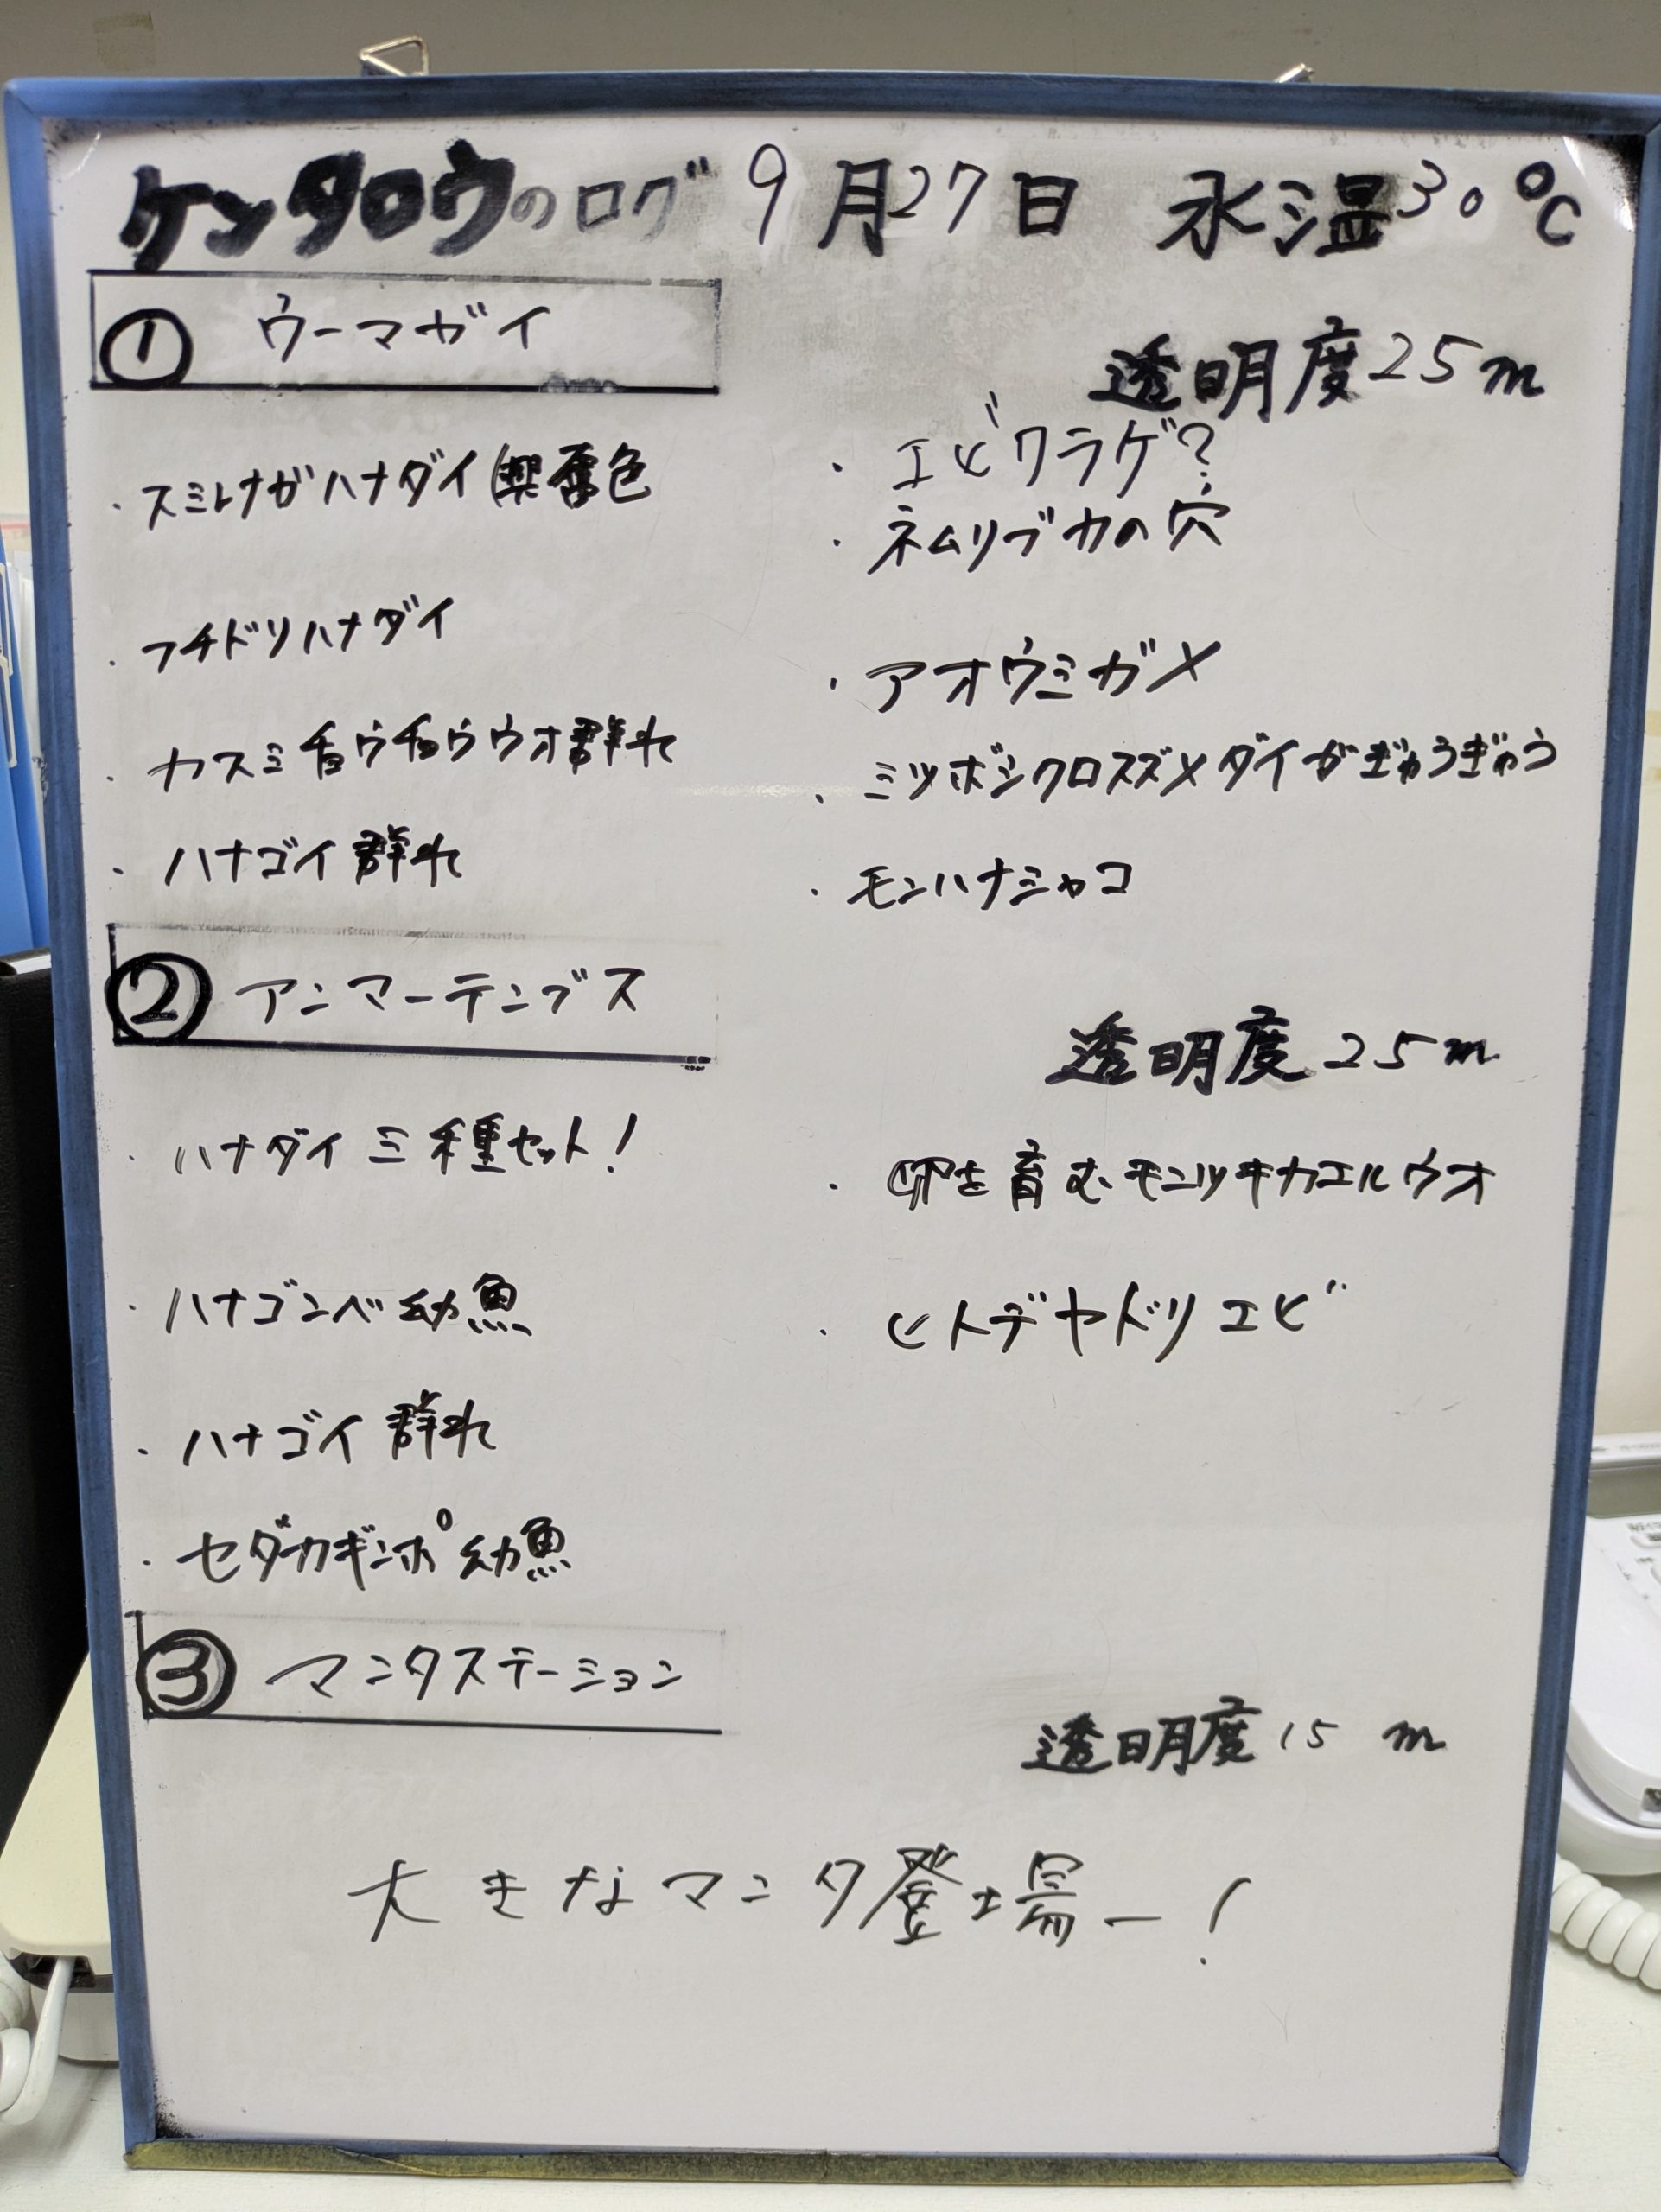 ケンタロウのログ 9月27日 水温30℃
① ウーマガイ
透明度25m
・スミレナガハナダイ(興奮色
・フチドリハナダイ
・カスミチョウチョウウオ群れ
・ハナゴイ群れ
・エビクラゲ?
・ネムリブカの穴
・アオウミガメ
・ミツボシクロスズメダイがぎゅうぎゅう
・モンハナシャコ
② アンマーテンブス
透明度25m
・ハナダイ三種セット!
・ハナゴンベ幼魚
・ハナゴイ群れ
・セダカギンポ幼魚
・卵を育むモンツキカエルウオ
・ヒトデヤドリエビ
③ マンタステーション
透明度15m
大きなマンタ登場ー!